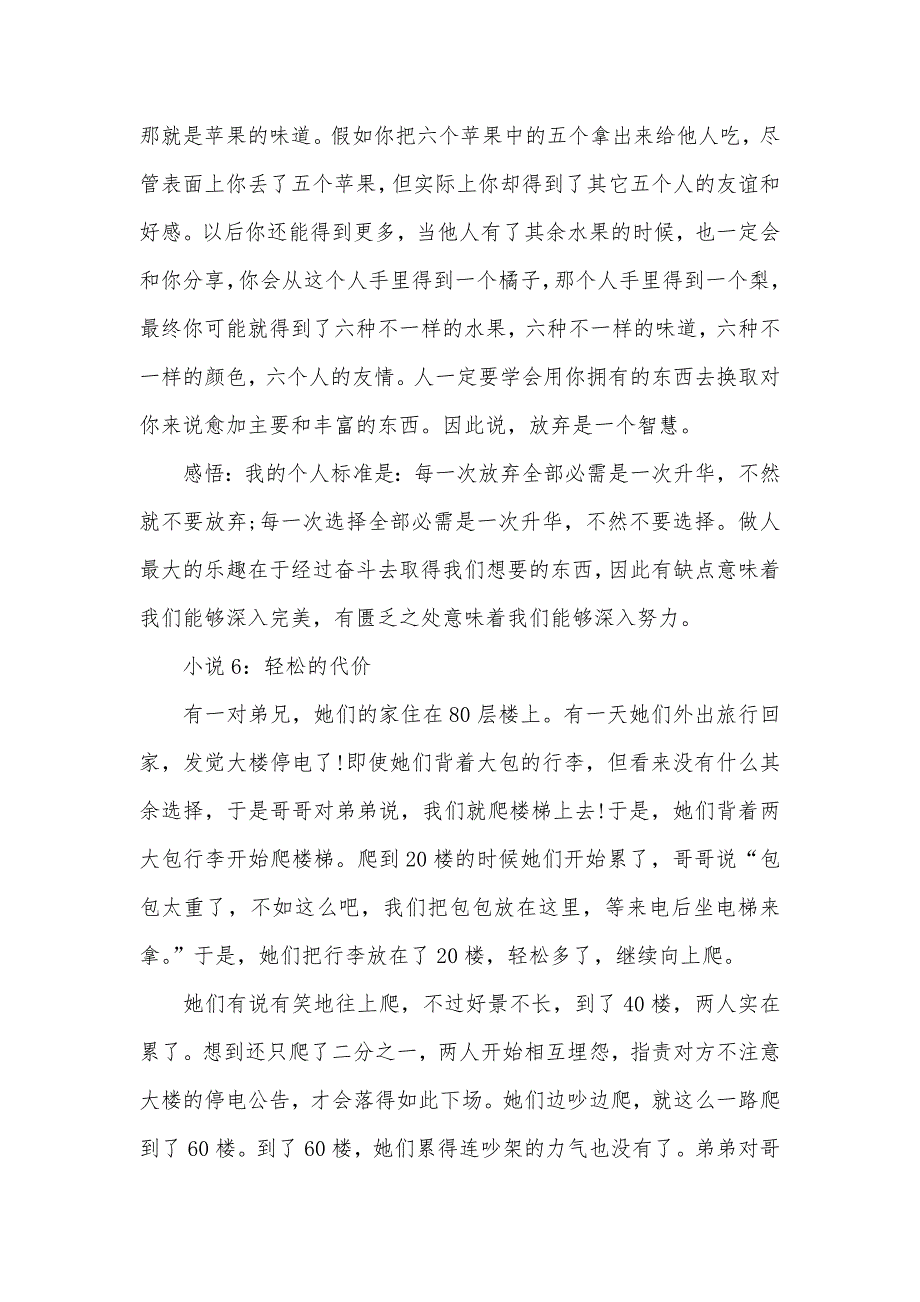 那就是苹果的味道。假如你把六个苹果中的五个拿出来给他人吃，尽
管表面上你丢了五个苹果，但实际上你却得到了其它五个人的友谊和
好感。以后你还能得到更多，当他人有了其余水果的时候，也一定会
和你分享，你会从这个人手里得到一个橘子，那个人手里得到一个梨，
最终你可能就得到了六种不一样的水果，六种不一样的味道，六种不
一样的颜色，六个人的友情。人一定要学会用你拥有的东西去换取对
你来说愈加主要和丰富的东西。因此说，放弃是一个智慧。
感悟：我的个人标准是：每一次放弃全部必需是一次升华，不然
就不要放弃;每一次选择全部必需是一次升华，不然不要选择。做人
最大的乐趣在于经过奋斗去取得我们想要的东西，因此有缺点意味着
我们能够深入完美，有匮乏之处意味着我们能够深入努力。
小说6：轻松的代价
有一对弟兄，她们的家住在80层楼上。有一天她们外出旅行回
家，发觉大楼停电了!即使她们背着大包的行李，但看来没有什么其
余选择，于是哥哥对弟弟说，我们就爬楼梯上去!于是，她们背着两
大包行李开始爬楼梯。爬到20楼的时候她们开始累了，哥哥说“包
包太重了，不如这么吧，我们把包包放在这里，等来电后坐电梯来
拿。”于是，她们把行李放在了20楼，轻松多了，继续向上爬。
她们有说有笑地往上爬，不过好景不长，到了40楼，两人实在
累了。想到还只爬了二分之一，两人开始相互埋怨，指责对方不注意
大楼的停电公告，才会落得如此下场。她们边吵边爬，就这么一路爬
到了60楼。到了60楼，她们累得连吵架的力气也没有了。弟弟对哥